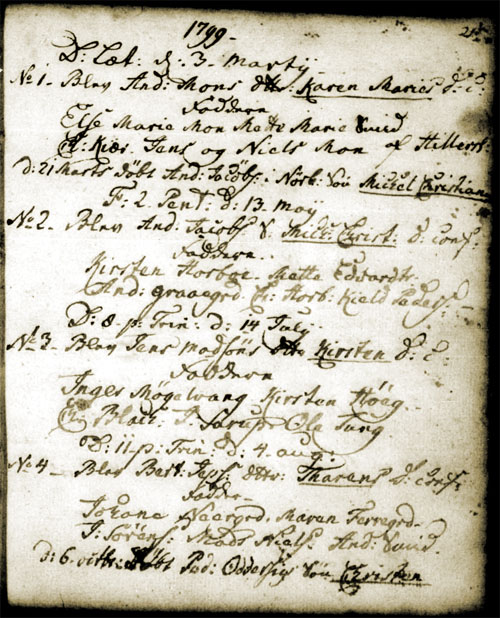 1799
D: Læt: d: 3 Martij
No 1 Blev And: Mons dttr: Karen Maries d: C:
Faddern
Else Marie Mon Mette Marie
Chr: Kiær Jens og Niels Mon af Hillers:
d: 21 Marts døbt And: Jacobs: i Nørb: Søn Michel Christian
F: 2 Pent: d: 13 Maij
No 2 Blev And: Jacobs S: Mich: Christ: d: Conf:
Faddern
Kirsten Horboe Mette Edvardt:
And: Graaegrd Ch: Horb: Kield Peders:
D: 8 p: Trin: d: 14 July
No 3 Blev Jens Madsøns dttr Kirsten d: C:
Faddern
Inger Møgelvang Kirsten Høeg
Chr Bladt P: Sarup Ole Tung
D: 11 p: Trin: d: 4 aug:
No 4 Blev Bert: Jeps: dttr: Tharens d: Conf:
Fadder
Johane Naaergrd. Maren Ferregrd
J: Sørens: Mads Niels: And:
d: 6 døbt Ped: Oddersiys Søn Christen